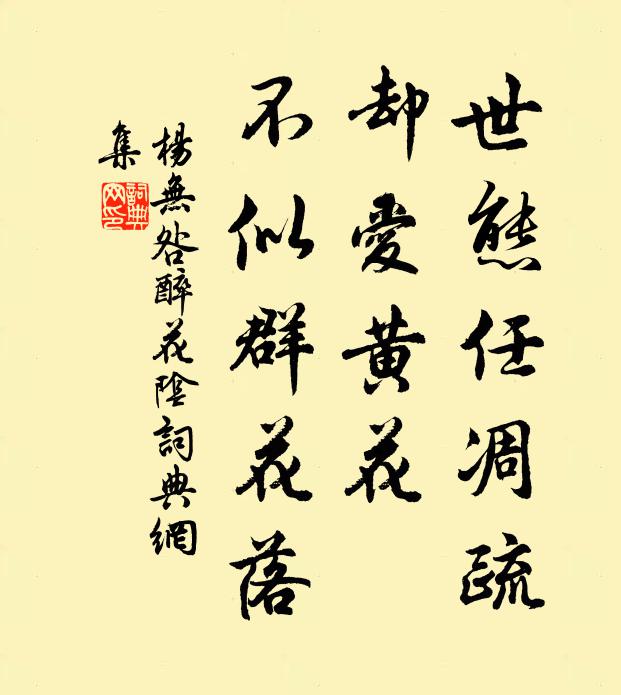 世態任凋疏
却愛黄花
不似群花落
楊無咎醉花陰詞典網
集
詞典
网印